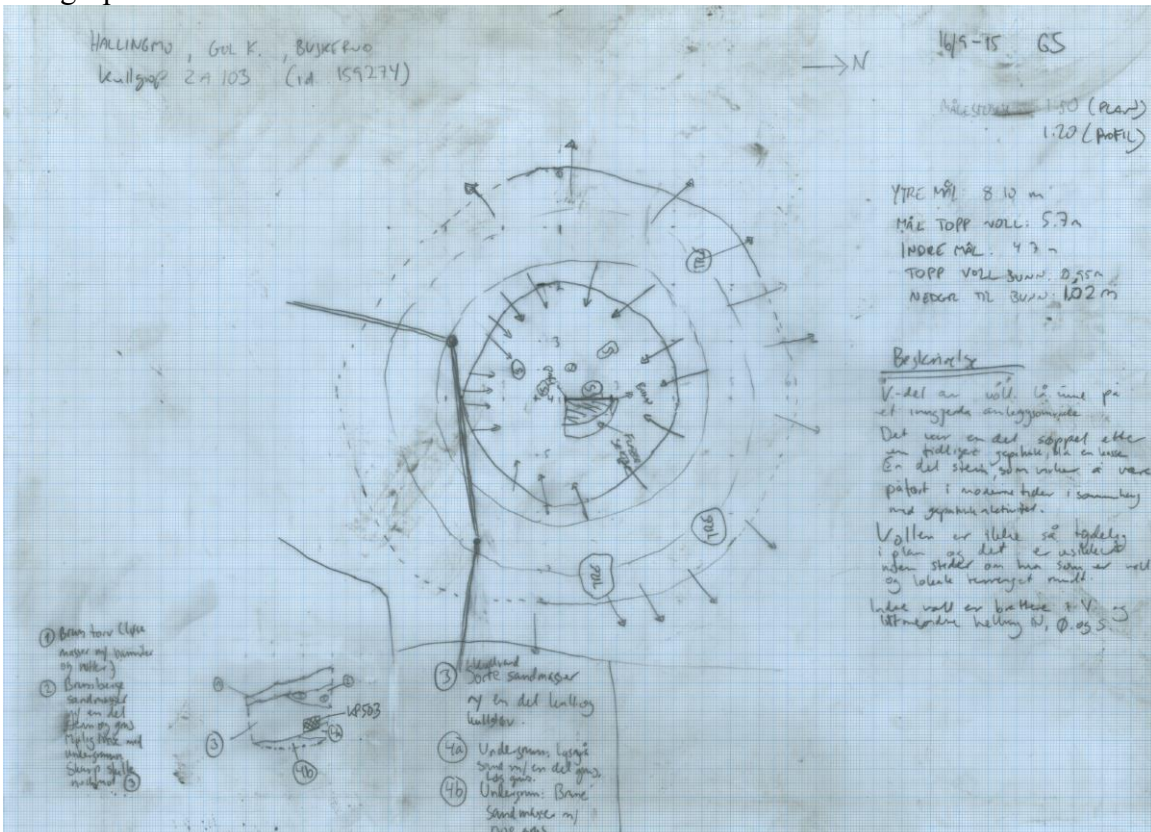 HALLINGMO, GOL K., BUSKERUD
Kullgrop ZA 103 (IA 159274)
→N
16/9-15 GS
MÅLESTOKK 1:50 (PLAN)
1:20 (PROFIL)
YTRE MÅL 8.10 m
MÅL TOPP VOLL: 5.7m
INDRE MÅL: 4.7m
TOPP VOLL BUNN: 0,95m
NEDGR TIL BUNN: 1,02 m
Beskrivelse
V-del av voll lå inne på
et inngjerda anleggsområde.
Det var en del søppel etter
en tidligere
En del stein, som virker å være
påført i moderne tider i sammenheng
med
Vollen er ikke så tydelig
i plan og det er usikkert
noen steder om hva som er voll
og lokale terrenget rundt.
Indre voll er brattere i V, og
litt mindre helling N, Ø. og S.
TRE
BUNN
① Brun torv (
masser m/
og røtter)
② Brunbeige
sandmasser
m/ en del
stein og grus
undergrunn
Skarp skille
③
KP503
③
④a
④b
③
Sorte sandmasser
m/ en del kull og
kullstøv.
④a Undergrunn: Lysgrå
sand m/ en del grus
④b Undergrunn: Brune
sandmasser m/